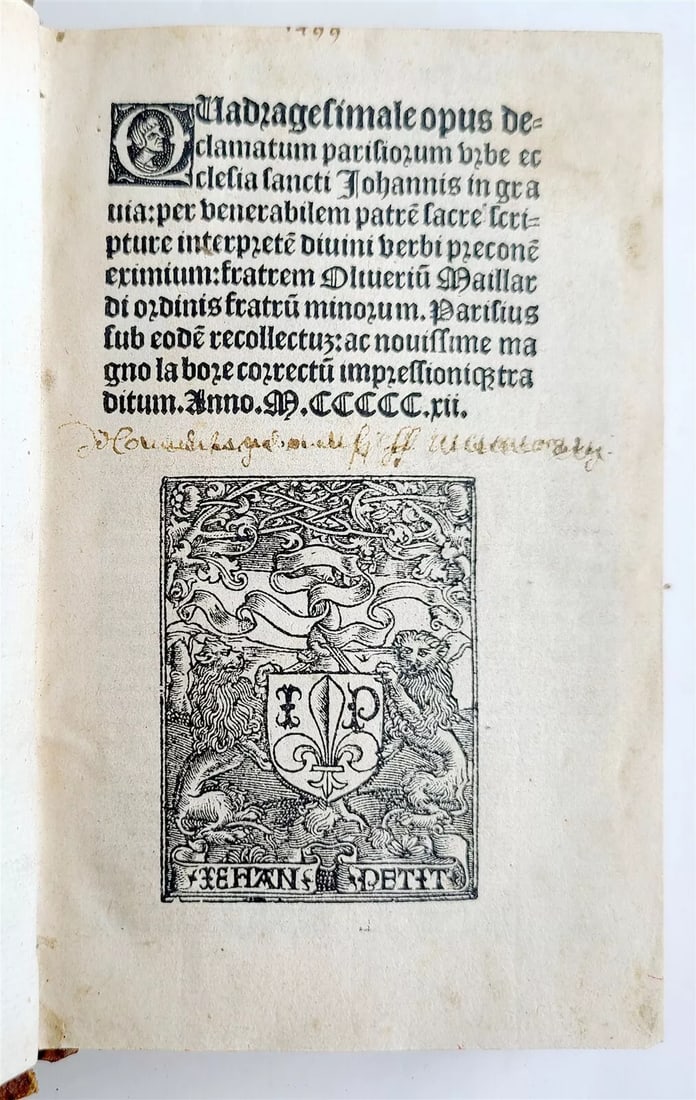 1499
QUadragesimale opus de=
clamatum parisiorum vrbe ec
clesia sancti Johannis in gra
uia: per venerabilem patrē sacre scri=
pture interpretē diuini verbi preconē
eximium: fratrem Oliueriū Maillar
di ordinis fratrū minorum. Parisius
sub eodē recollectuʒ: ac nouissime ma
gno labore correctū impressioniqꝫ tra
ditum. Anno. M. CCCCC. xii.
I P
IEHAN PETIT